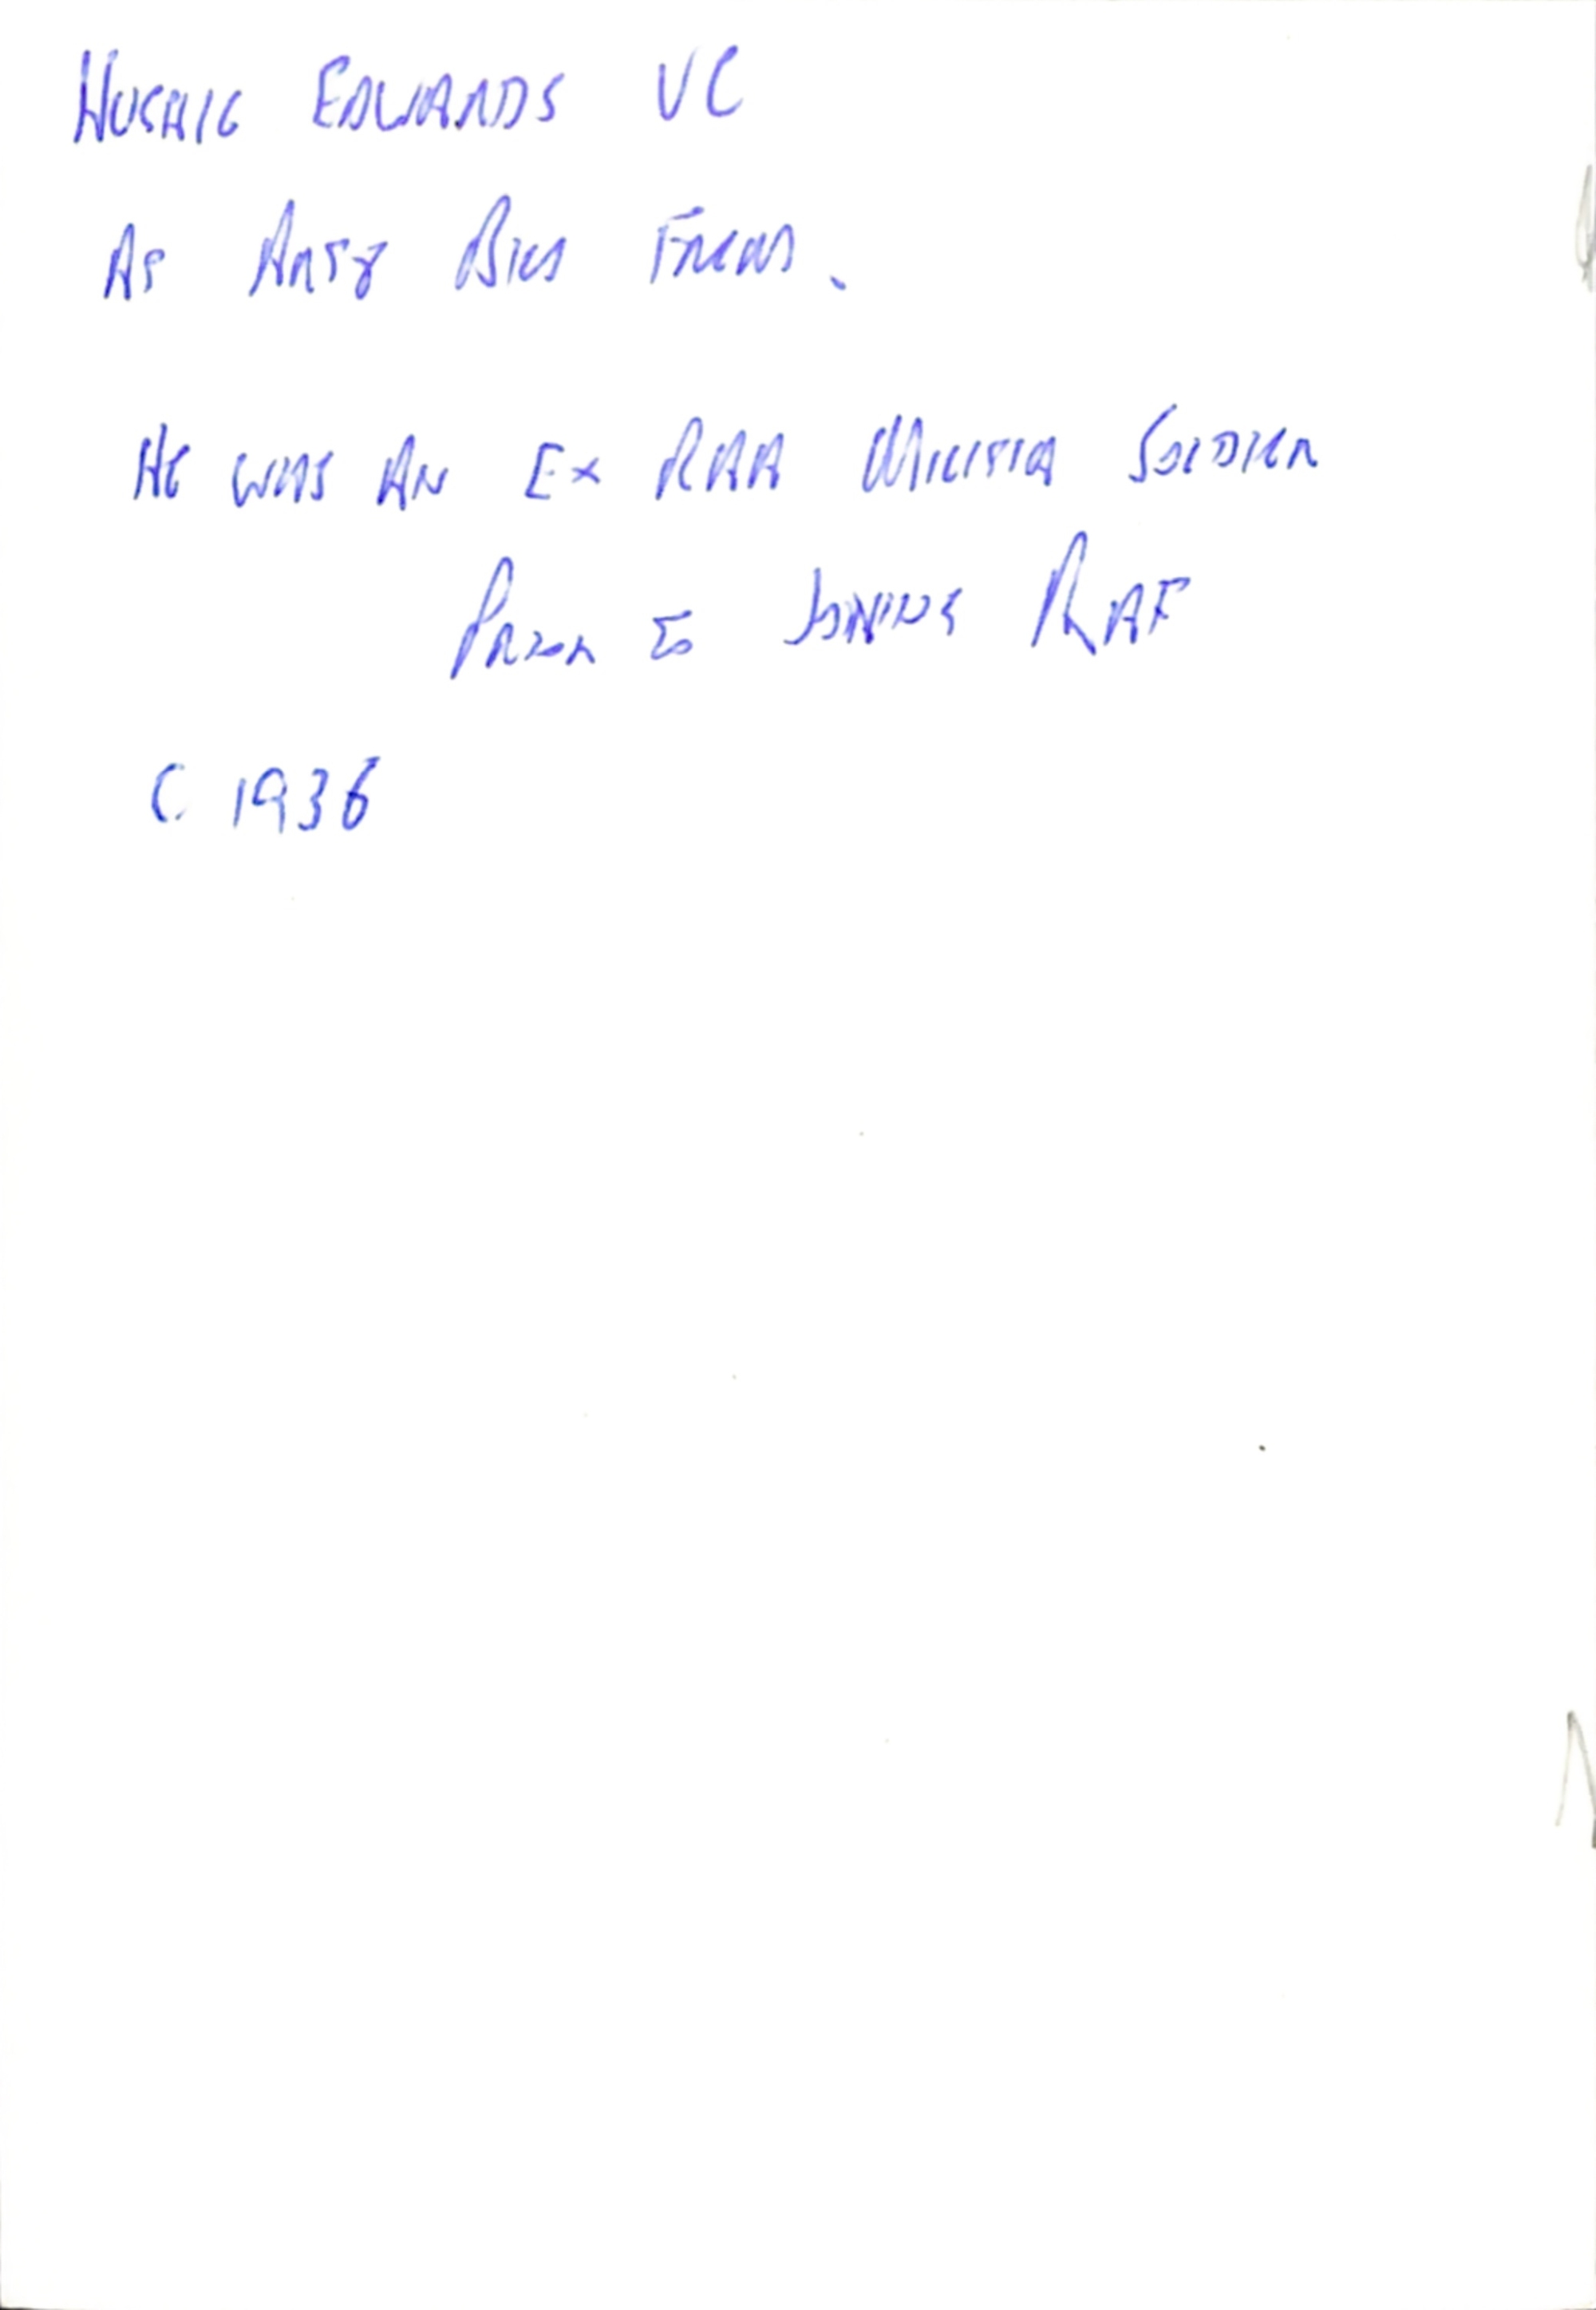 HUGHIE EDWARDS VC
AT ARTY BKS FREM.
HE WAS AN EX RAA MILITIA SOLDIER
PRIOR TO JOINING RAAF
C. 1936